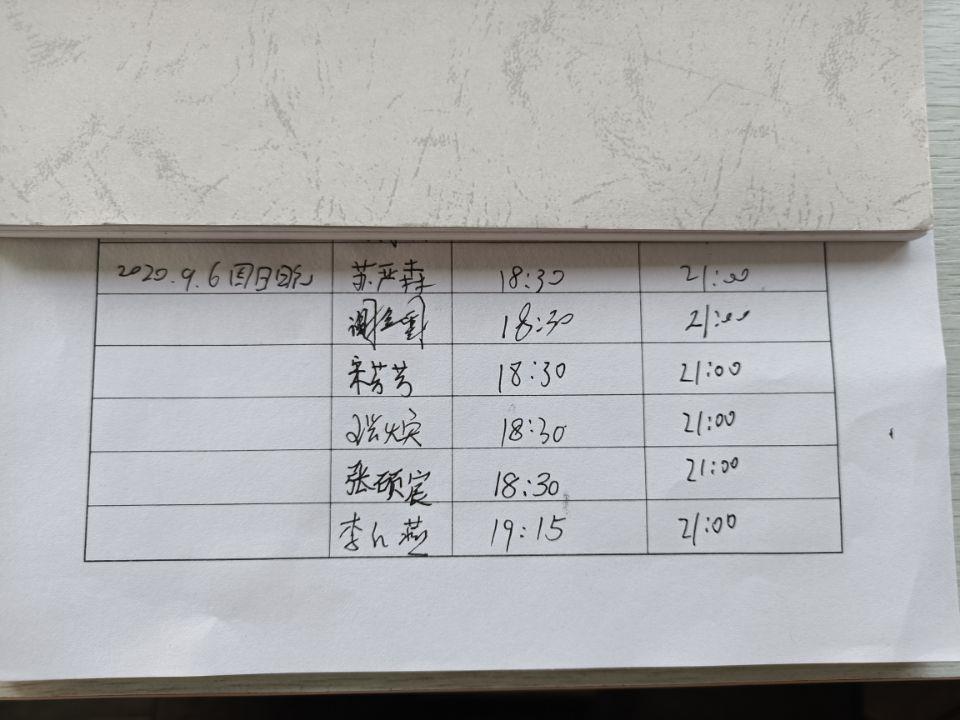 2020.9.6周日晚 苏严森 18:30 21:00
谢金 18:30 21:00
宋芳芳 18:30 21:00
张焕 18:30 21:00
张硕宸 18:30 21:00
李 燕 19:15 21:00